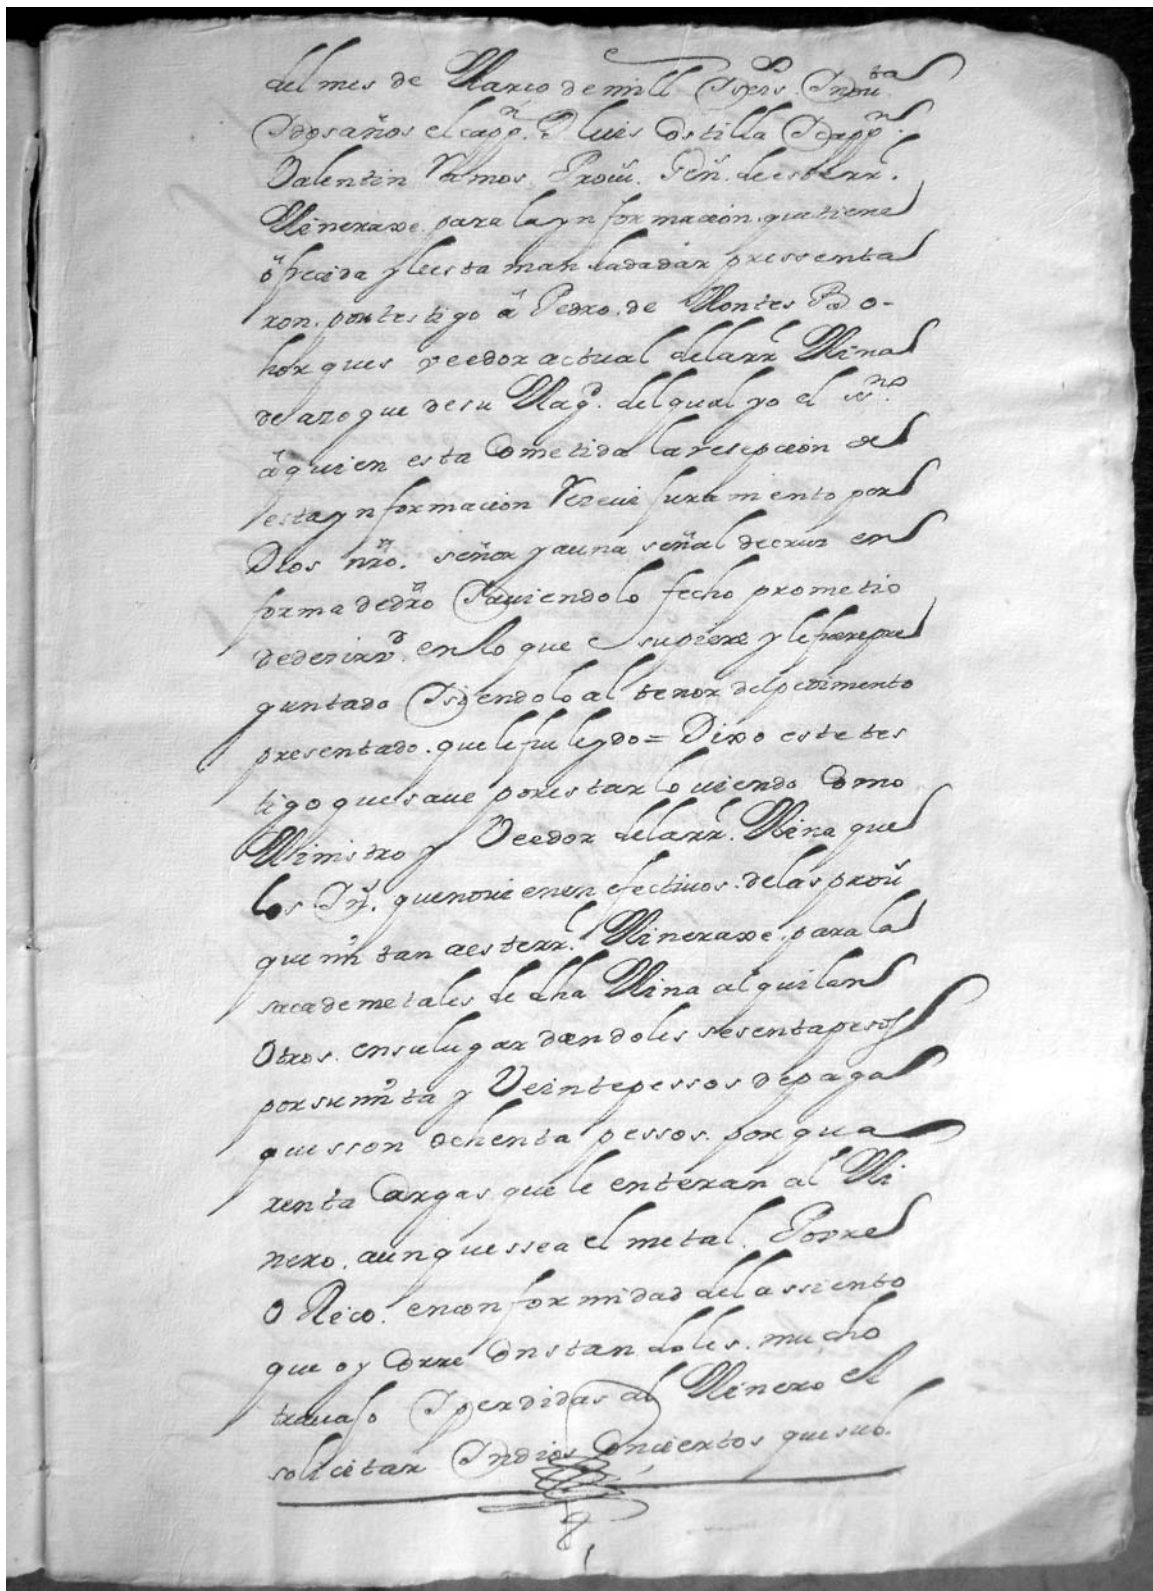 del mes de Março de mill y seis.s y nou.ta
y dos años el capp.n D luis Costilla y capp.n
Valentin Ramos. Prou.r Gen. de este rr.l
Mineraxe. para la ynformacion. que tiene
ofrecida y le esta mandada dar pressenta
ron. por testigo a Pedro. de Montes Bo-
horques veedor actual de la rr.l Mina
de azogue de su Mag.d del qual yo el ss.no
a quien esta Cometida la resepcion de
esta ynformacion Reciui Juramento por
Dios nro. señor y a una señal de cruz en
forma de dro y auiendolo fecho prometio
de dezir v.d en lo que supiere y le fuere pre
guntado y siendolo al tenor del pedimento
presentado. que le fue leydo = Dixo este tes
tigo que saue por estarlo uiendo Como
Ministro y Veedor de la rr.l Mina que
los Yn.s que no uienen efectiuos. de las prou.s
que mitan a este rr.l Mineraxe. para la
saca de metales de dha Mina alquilan
Otros. en su lugar dandoles sesenta pesos
por su mita y Veinte pessos de paga
que sson ochenta pessos. por qua
renta Cargas que le enteran al Mi
nero. aunque ssea el metal. Pobre
O Rico. en conformidad del assiento
que oy Corre Constandoles. mucho
trauajo y perdidas al Minero el
solicitar Yndios Conciertos que sub.